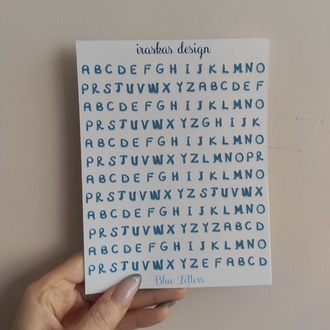 iraskas design
A B C D E F G H I J K L M N O
P R S T U V W X Y Z A B C D E F
A B C D E F G H I J K L M N O
P R S T U V W X Y Z G H I J K
A B C D E F G H I J K L M N O
P R S T U V W X Y Z L M N O P R
A B C D E F G H I J K L M N O
P R S T U V W X Y Z S T U V W X
A B C D E F G H I J K L M N O
P R S T U V W X Y Z Y Z A B C D
A B C D E F G H I J K L M N O
P R S T U V W X Y Z E F A B C D
Blue Letters